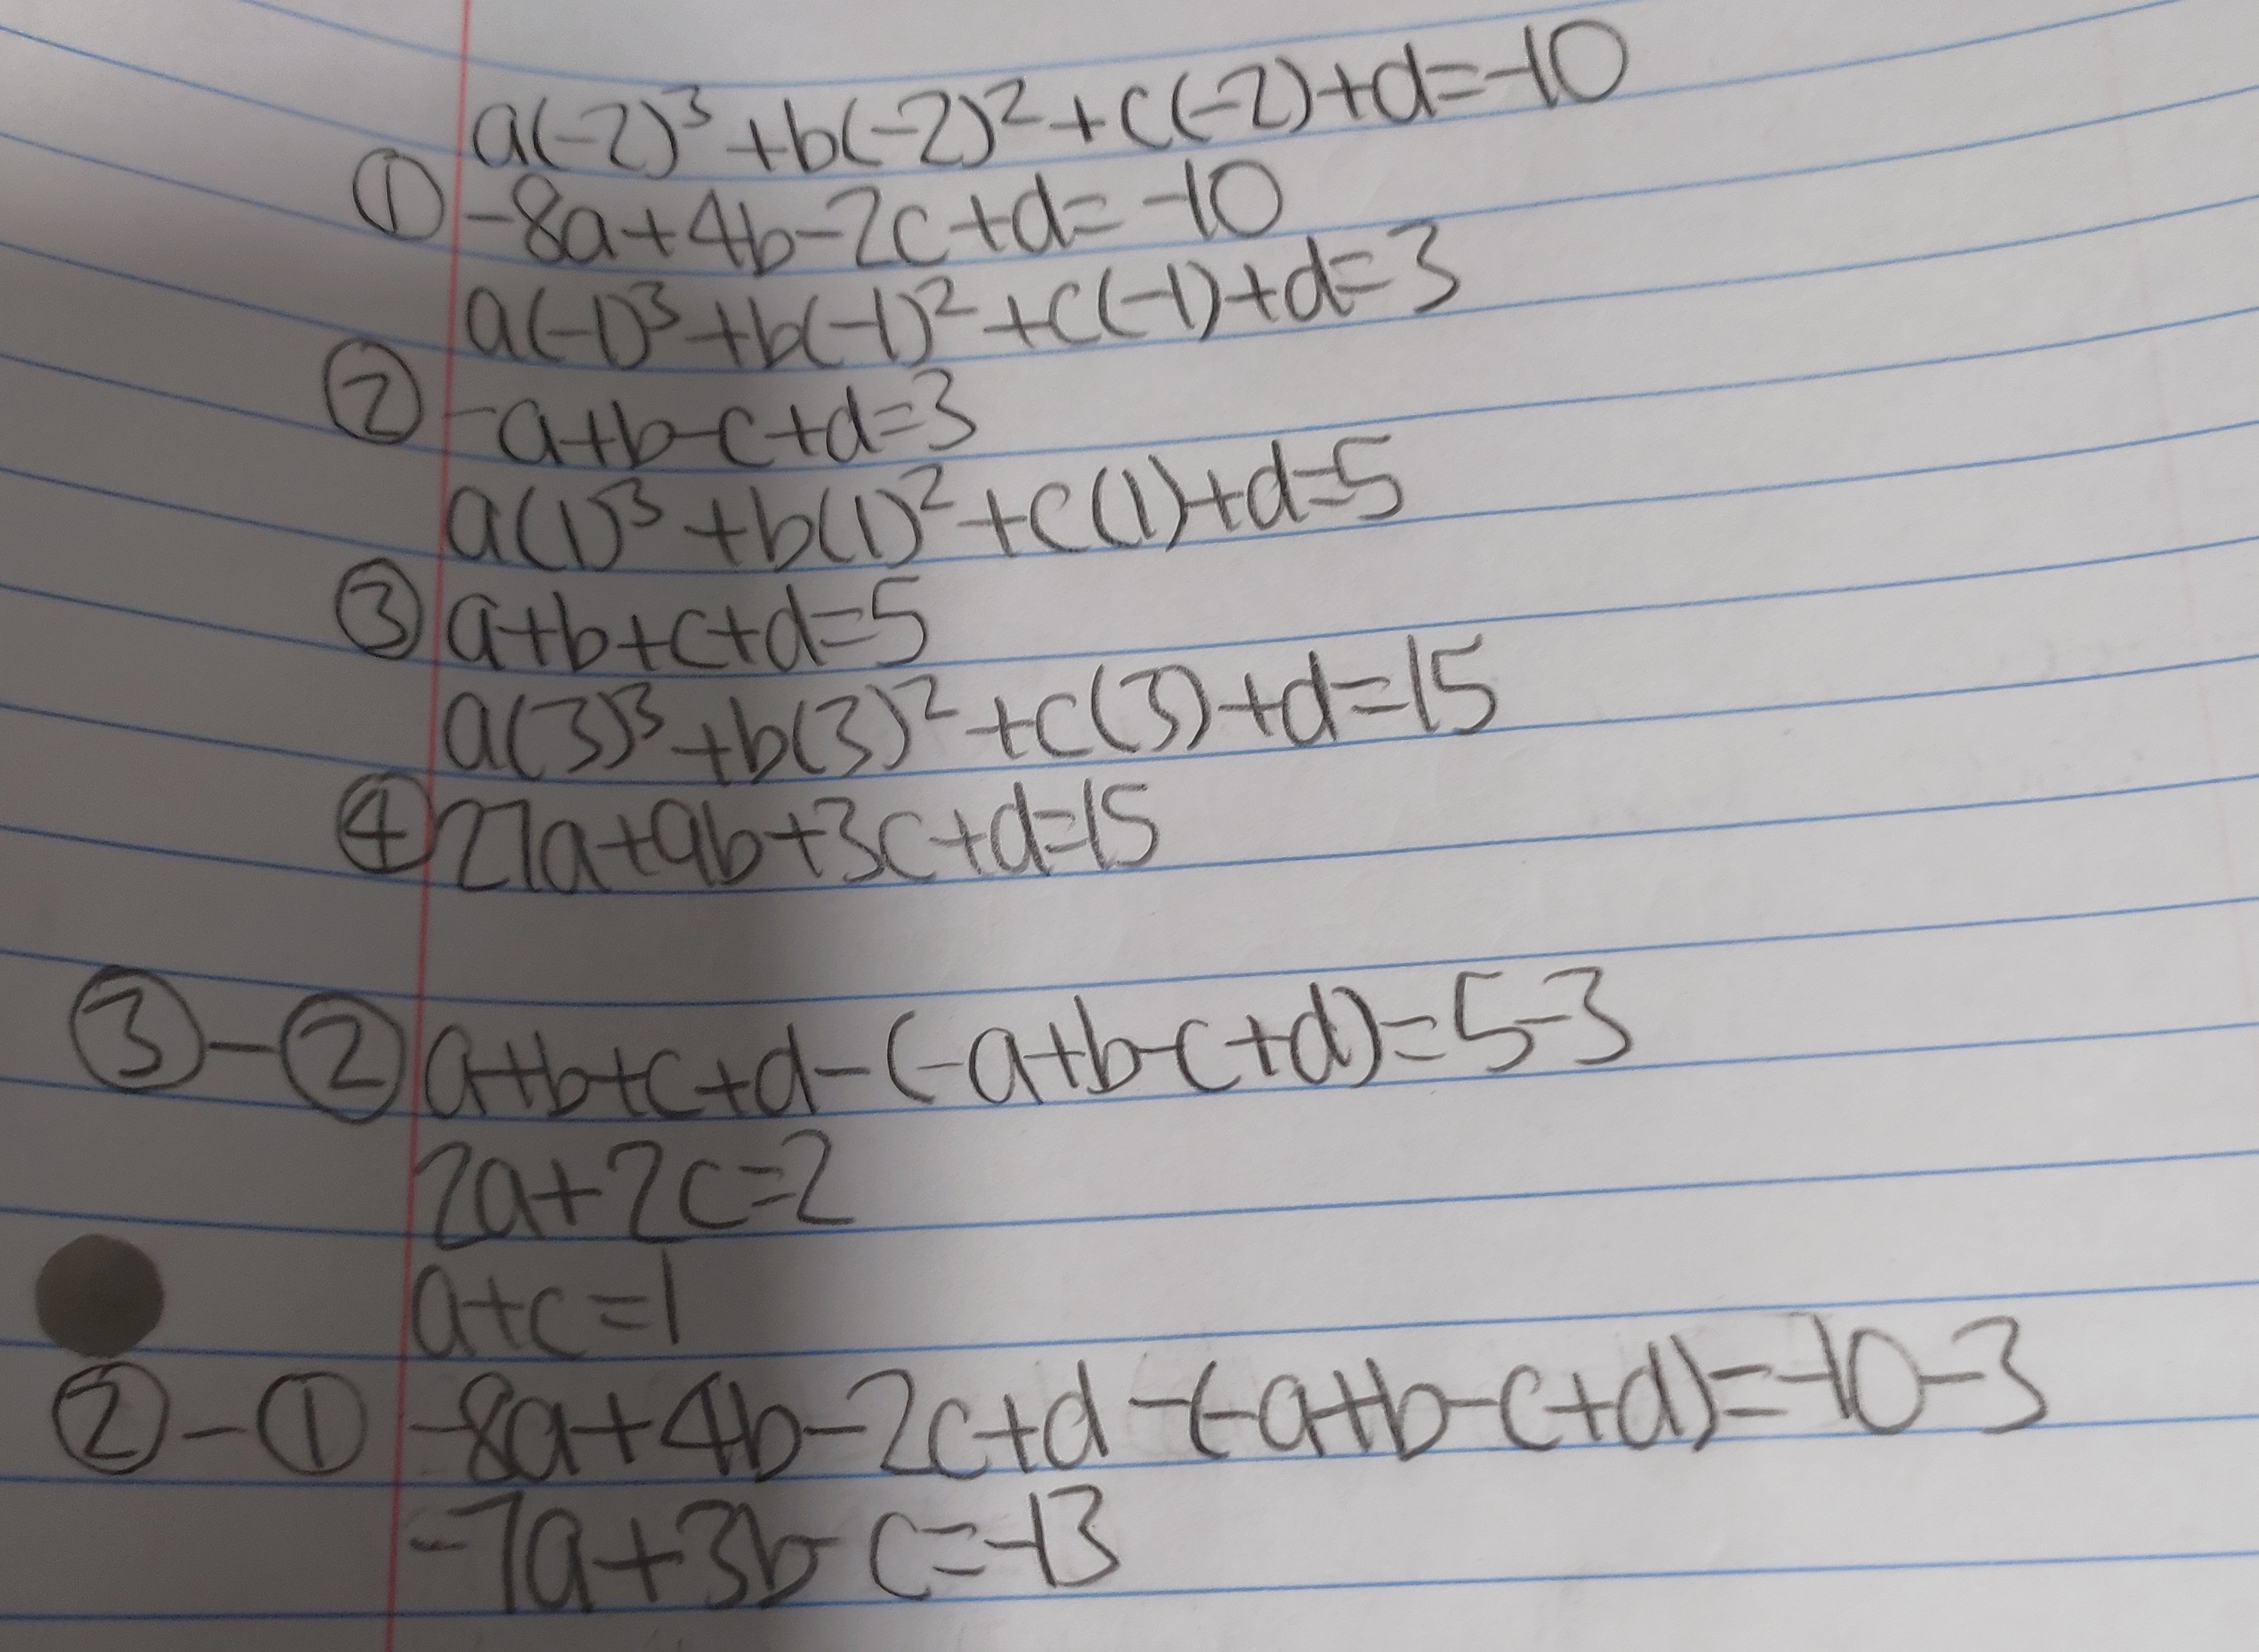 a(-2)³+b(-2)²+c(-2)+d=-10
① -8a+4b-2c+d=-10
a(-1)³+b(-1)²+c(-1)+d=3
② -a+b-c+d=3
a(1)³+b(1)²+c(1)+d=5
③ a+b+c+d=5
a(3)³+b(3)²+c(3)+d=15
④ 27a+9b+3c+d=15
③-② a+b+c+d-(-a+b-c+d)=5-3
2a+2c=2
a+c=1
②-① -8a+4b-2c+d-(-a+b-c+d)=-10-3
-7a+3b-c=-13